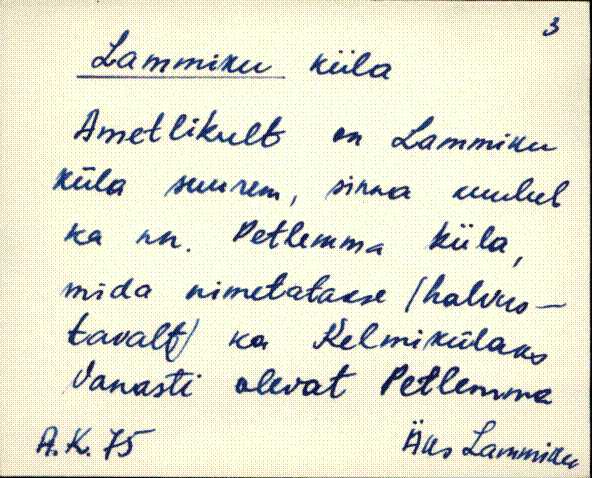 3
Lammiku küla
Ametlikult on Lammiku
küla suurem, sinna kuulub
ka nn. Petlemma küla,
mida nimetatakse (halvus-
tavalt) ka Kelmikülaks
Vanasti olevat Petlemma
A.K. 75 Äks Lammiku